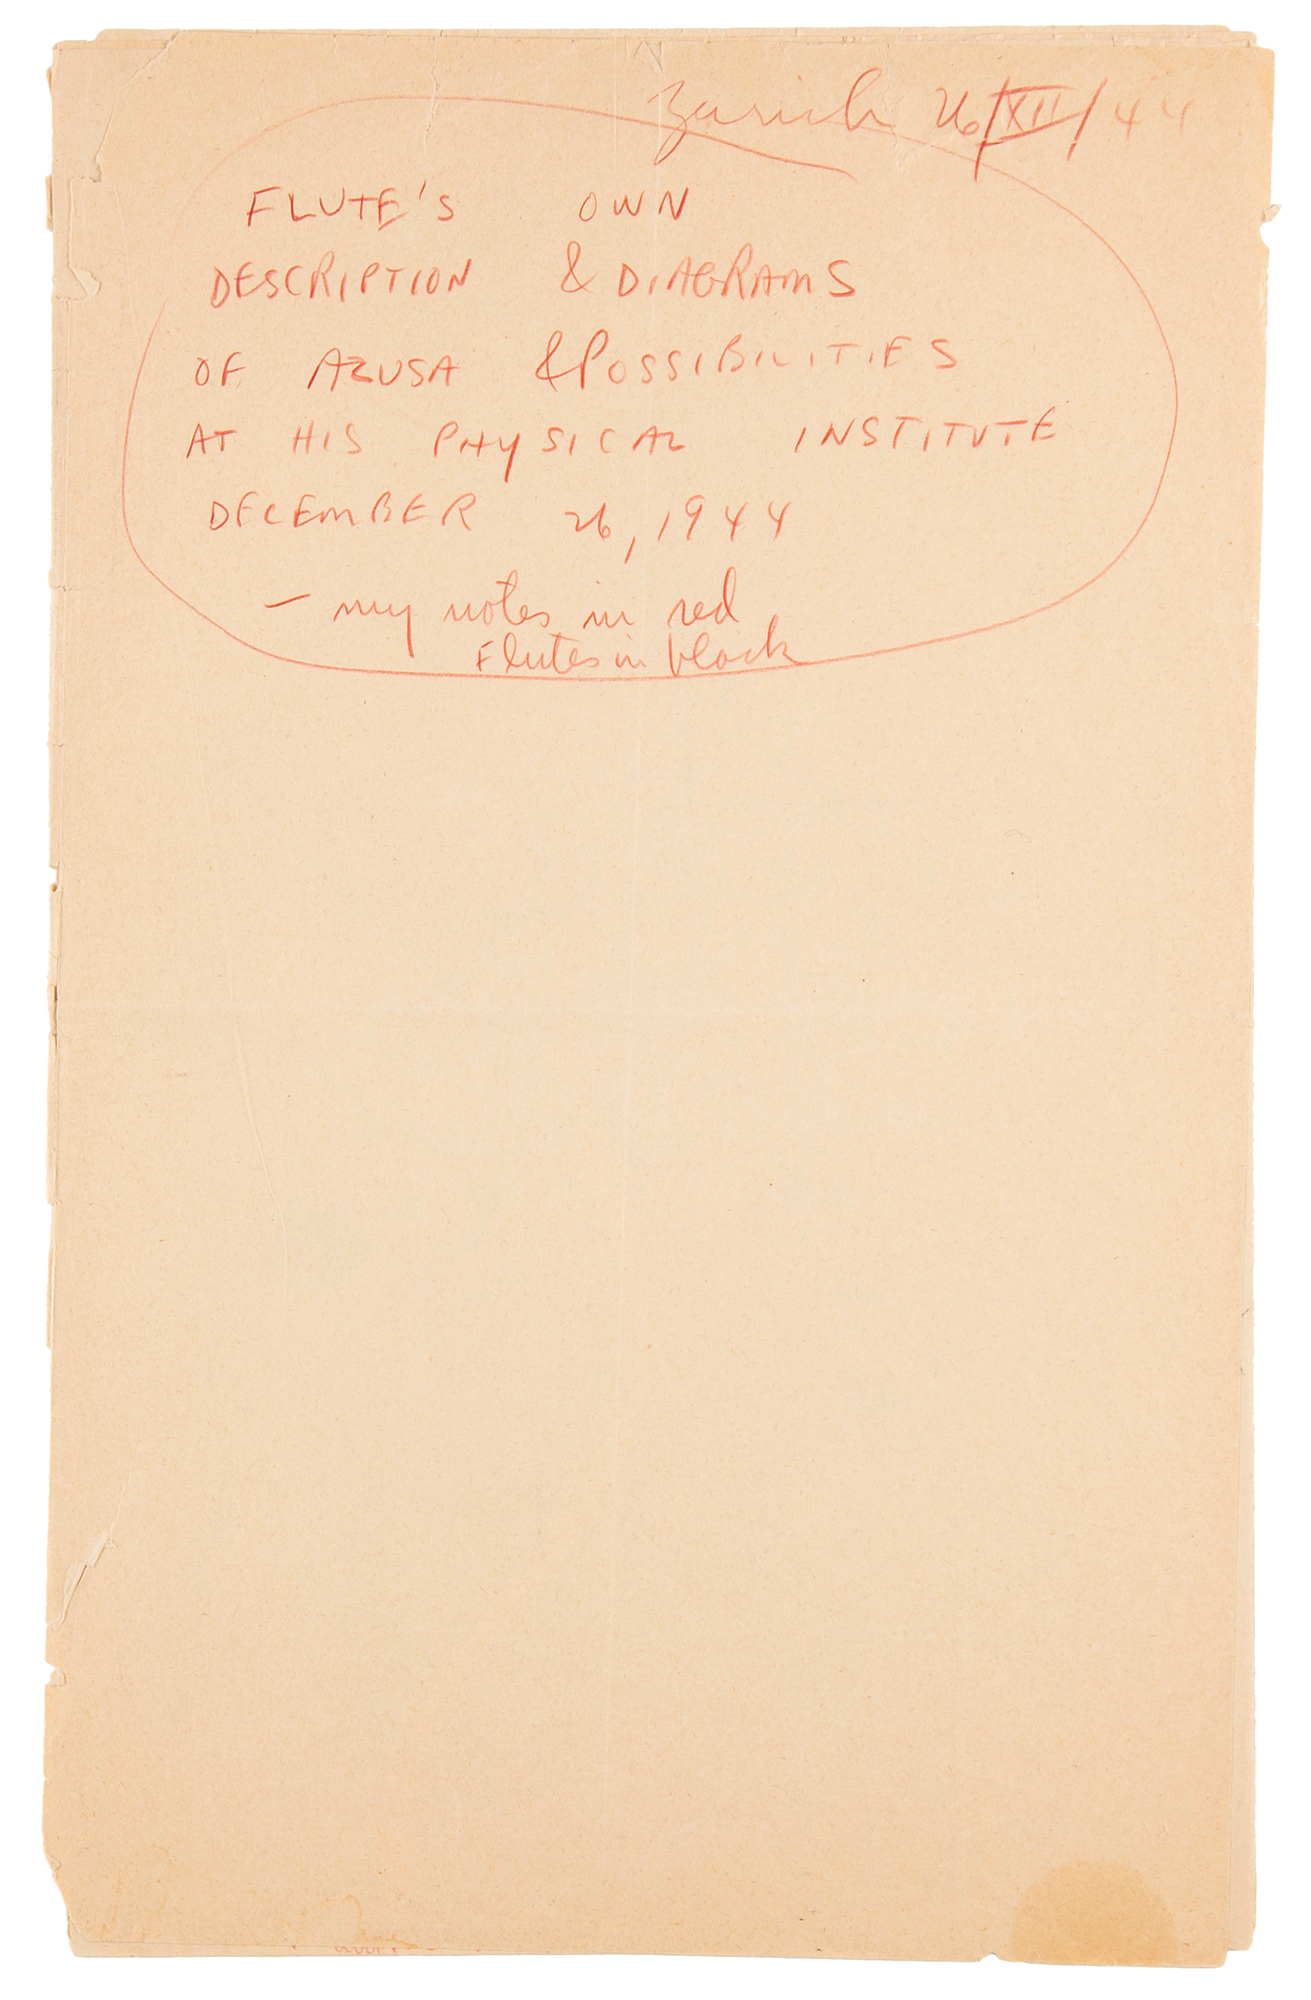 Zurich 26/XII/44
FLUTE'S OWN
DESCRIPTION & DIAGRAMS
OF AZUSA & POSSIBILITIES
AT HIS PHYSICAL INSTITUTE
DECEMBER 26, 1944
- my notes in red
Flutes in black